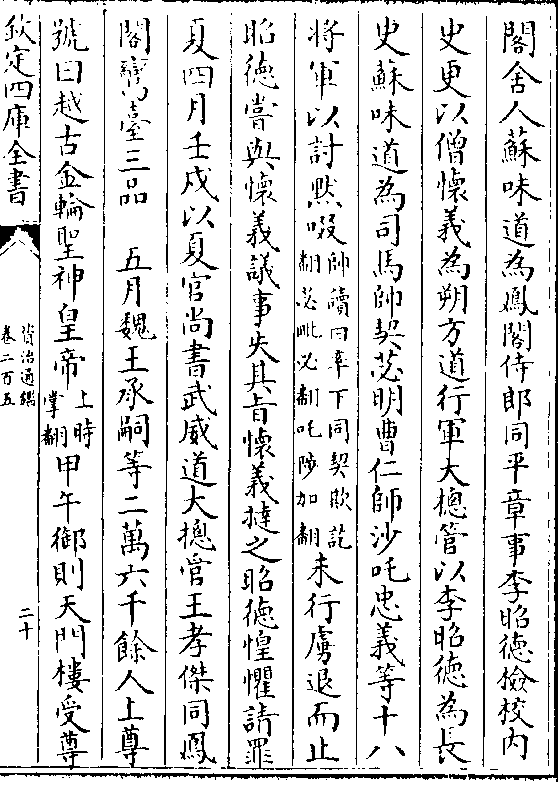 閣舍人蘇味道為鳳閣侍郎同平章事李昭德檢校内
史更以僧懷義為朔方道行軍大摠管以李昭德為長
史蘇味道為司馬帥契苾明曹仁師沙吒忠義等十八
將軍以討默啜帥讀曰率下同契欺訖翻苾毗必翻吒陟加翻未行虜退而止
昭德嘗與懷義議事失其旨懷義撻之昭德惶懼請罪
夏四月壬戌以夏官尚書武威道大摠管王孝傑同鳳
閣鸞臺三品　五月魏王承嗣等二萬六千餘人上尊
號曰越古金輪聖神皇帝上時掌翻甲午御則天門樓受尊
欽定四庫全書
資治通鑑
卷二百五
二十